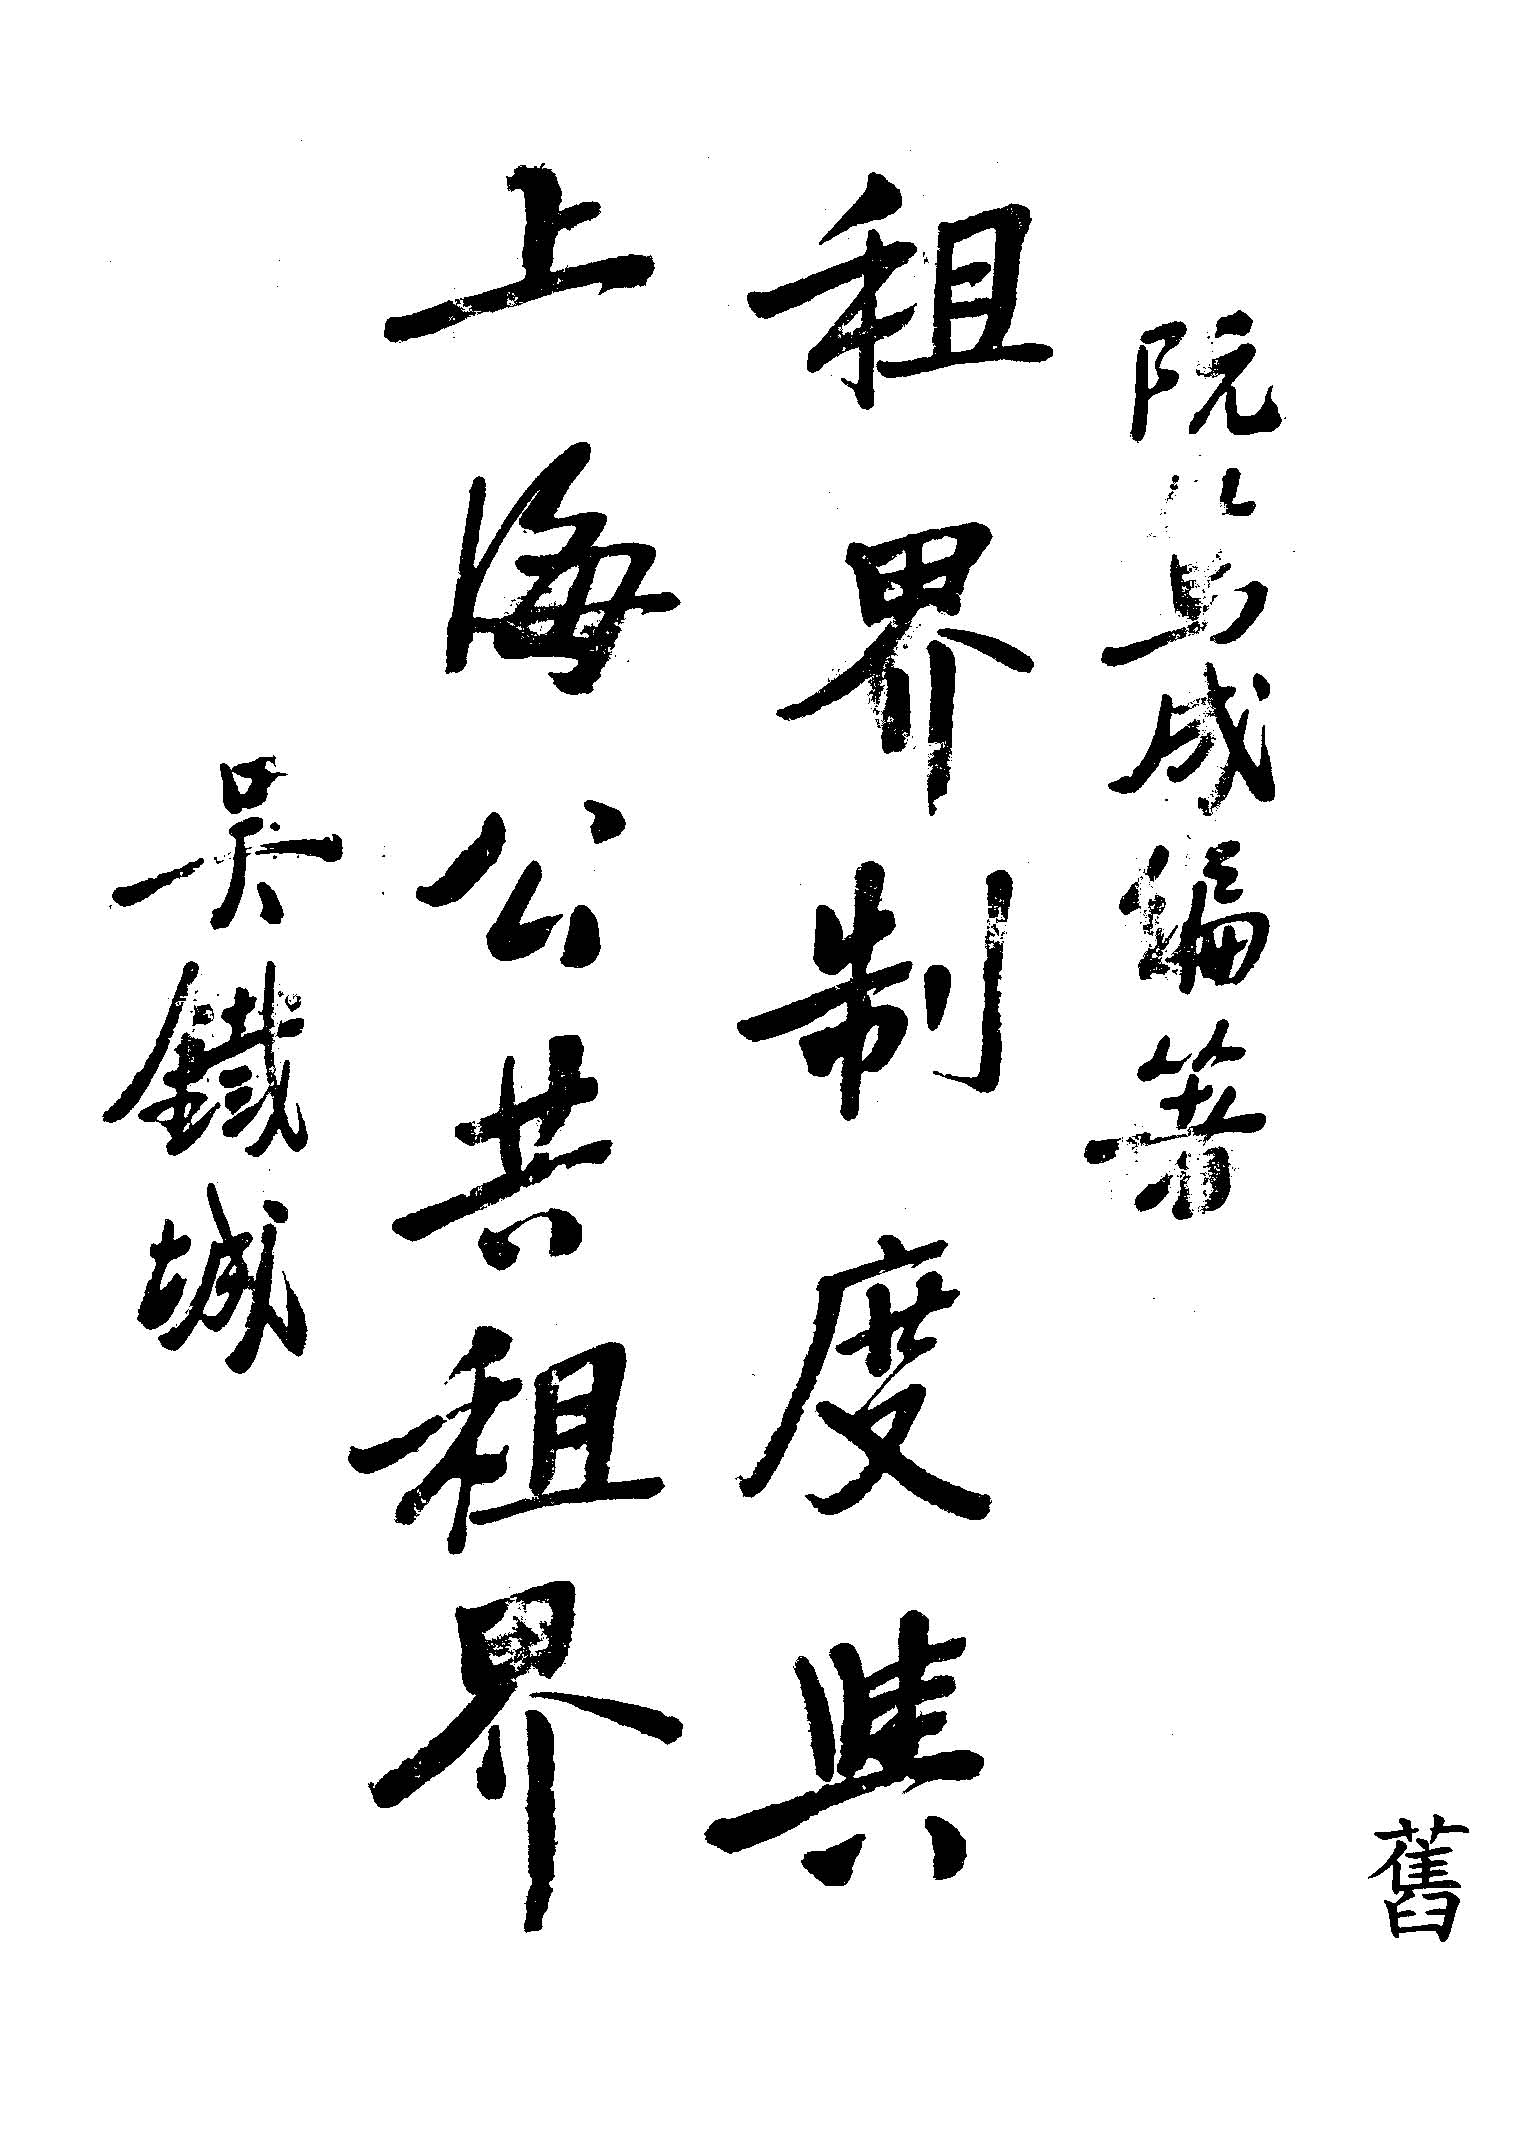 阮篤成編著
租界制度與
上海公共租界
吳鐵城
舊